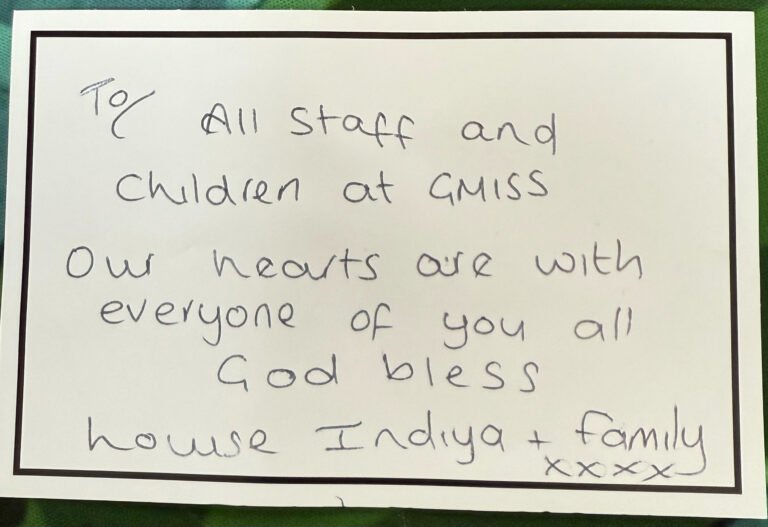 To/ All Staff and
Children at GMISS
Our hearts are with
everyone of you all
God bless
Indiya + family
xxxx